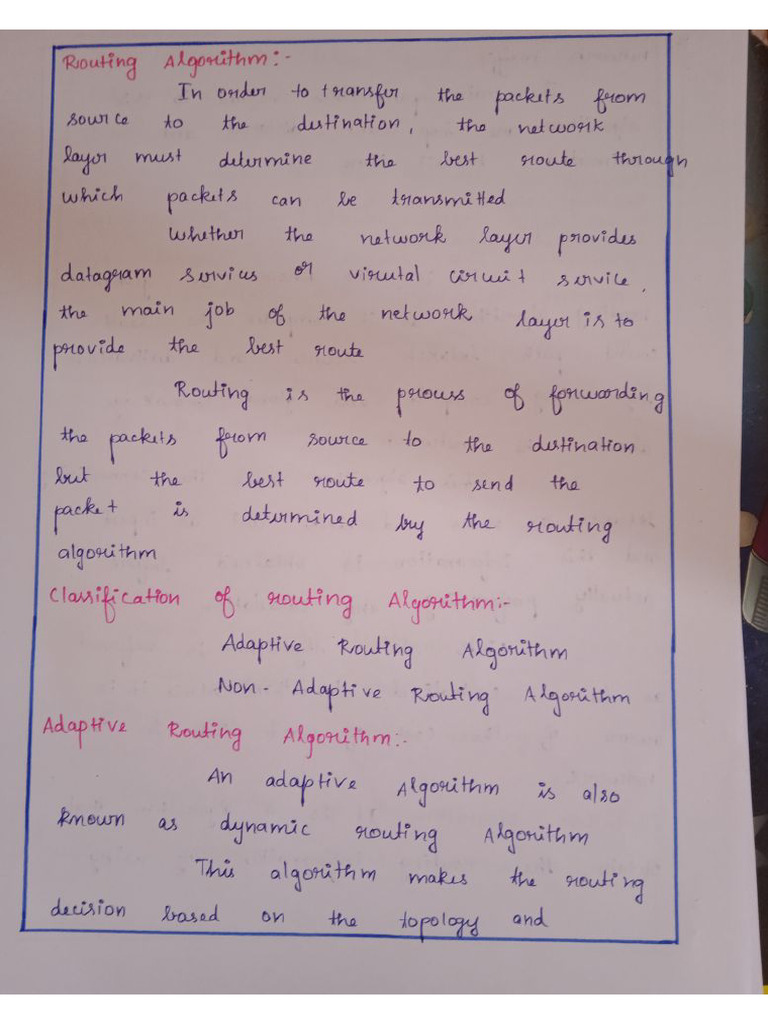 Routing Algorithm:-
In order to transfer the packets from
source to the destination, the network
layer must determine the best route through
which packets can be transmitted
Whether the network layer provides
datagram services or virutal circuit service,
the main job of the network layer is to
provide the best route
Routing is the process of forwarding
the packets from source to the destination
but the best route to send the
packet is determined by the routing
algorithm
Classification of routing Algorithm:-
Adaptive Routing Algorithm
Non- Adaptive Routing Algorithm
Adaptive Routing Algorithm:-
An adaptive Algorithm is also
known as dynamic routing Algorithm
This algorithm makes the routing
decision based on the topology and